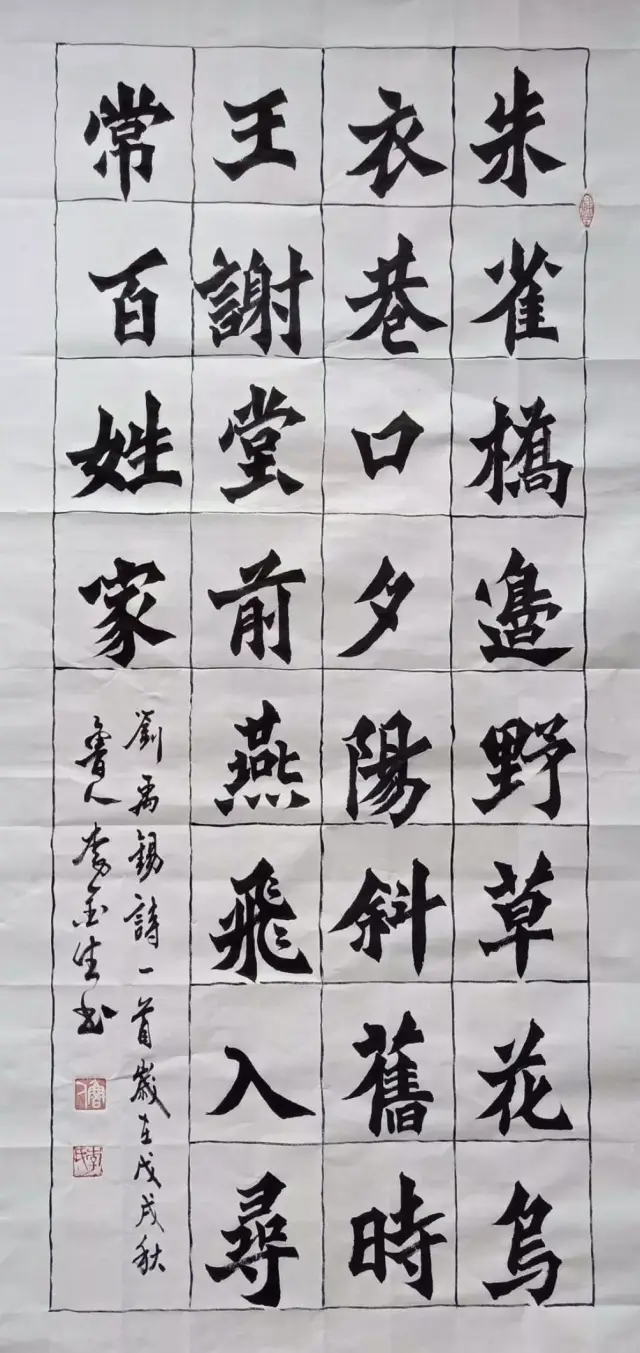 朱雀橋邉野草花烏
衣巷口夕陽斜舊時
王謝堂前燕飛入尋
常百姓家
劉禹錫詩一首歲在戊戌秋
魯人李金生书